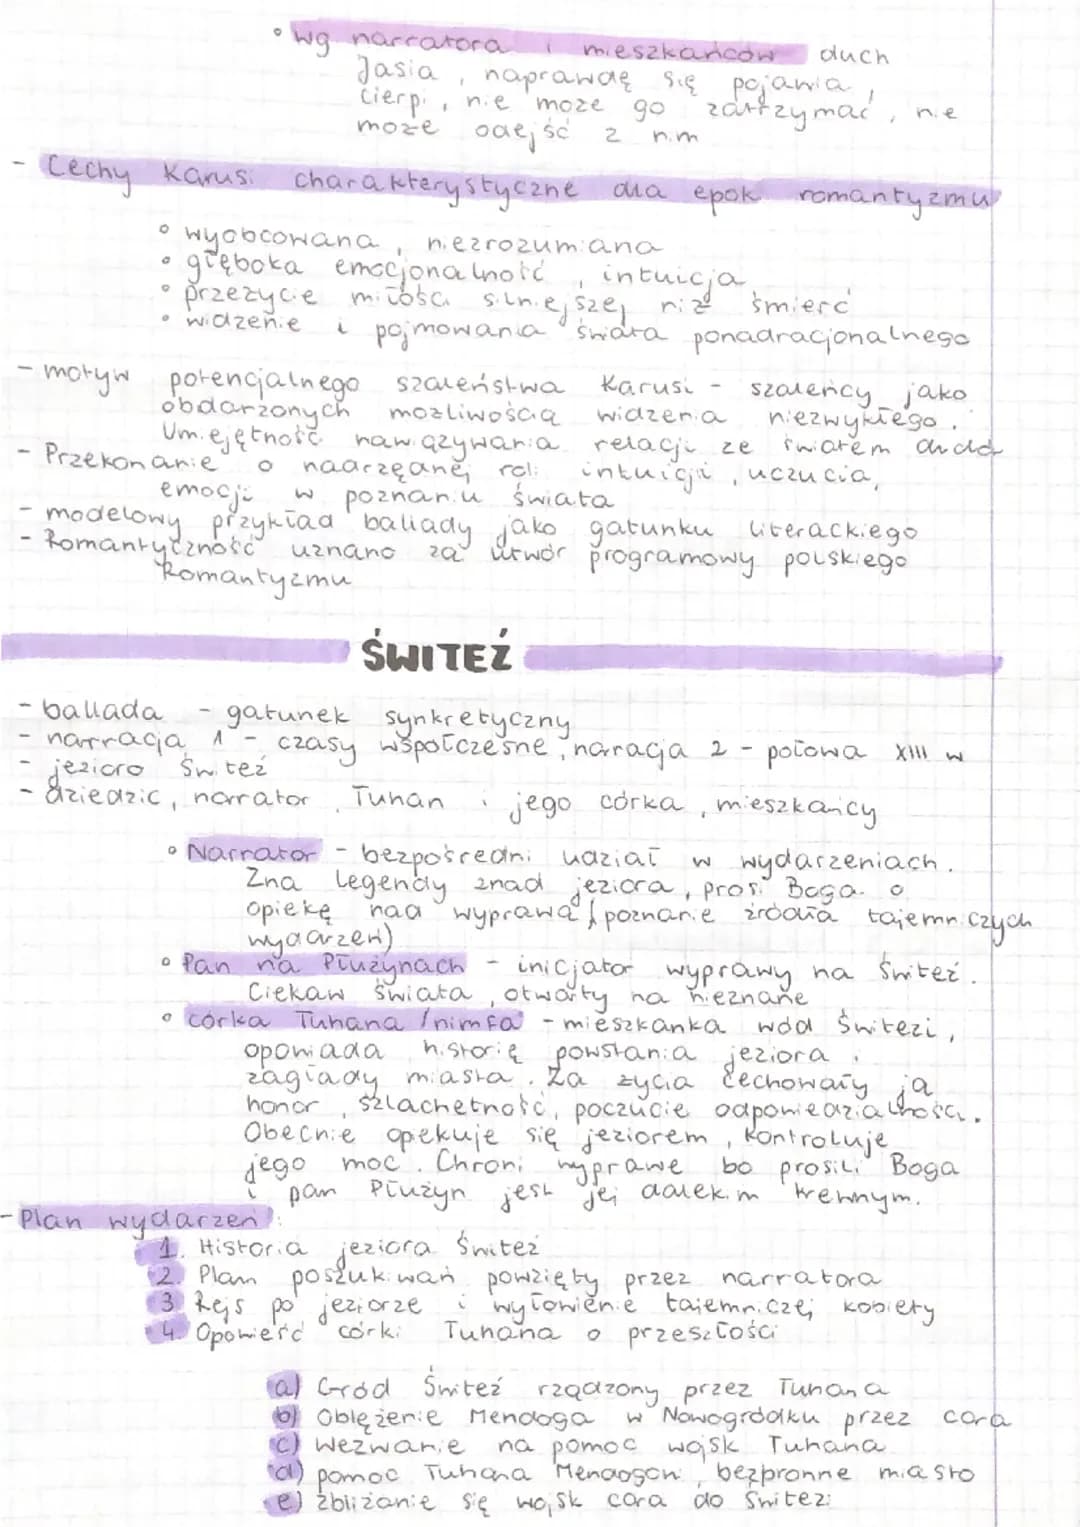 • wg narratora i mieszkańców duch
Jasia, naprawdę się pojawia,
cierpi, nie może go zatrzymać, nie
może odejść z nim
- Cechy Karusi charakterystyczne dla epoki romantyzmu
• wyobcowana, niezrozumiana
• głęboka emocjonalność, intuicja
• przeżycie miłości silniejszej niż śmierć
• widzenie i pojmowania świata ponadracjonalnego
- motyw potencjalnego szaleństwa Karusi - szaleńcy jako
obdarzonych możliwością widzenia niezwykłego.
Umiejętność nawiązywania relacji ze światem
- Przekonanie o nadrzędnej roli intuicji, uczucia,
emocji w poznaniu świata
- modelowy przykład ballady jako gatunku literackiego
- Romantyczność uznano za utwór programowy polskiego
Romantyzmu
ŚWITEŹ
- ballada - gatunek synkretyczny
- narracja 1 - czasy współczesne, naracja 2 - połowa XIII w
- jezioro Świteź
- dziedzic, narrator, Tuhan i jego córka, mieszkańcy
• Narrator - bezpośredni udział w wydarzeniach.
Zna legendy znad jeziora, prosi Boga o
opiekę nad wyprawą (poznanie źródła tajemniczych
wydarzeń)
• Pan na Płużynach - inicjator wyprawy na Świteź.
Ciekaw świata, otwarty na nieznane
• córka Tuhana /nimfa - mieszkanka wód Świtezi,
opowiada historię powstania jeziora i
zagłady miasta. Za życia cechowały ją
honor, szlachetność, poczucie odpowiedzialności.
Obecnie opekuje się jeziorem, kontroluje
jego moc. Chroni wyprawe bo prosili Boga
i pan Płużyn jest jej dalekim krewnym.
- Plan wydarzeń:
1. Historia jeziora Świteź
2. Plan poszukiwań powzięty przez narratora
3 Rejs po jeziorze i wyłowienie tajemniczej kobiety
4. Opowieść córki Tuhana o przeszłości
a) Gród Świteź rządzony przez Tuhana
b) Oblężenie Mendoga w Nowogródku przez cara
c) Wezwanie na pomoc wojsk Tuhana
d) pomoc Tuhana Mendogowi, bezbronne miasto
e) zbliżanie się wojsk cara do Świtezi